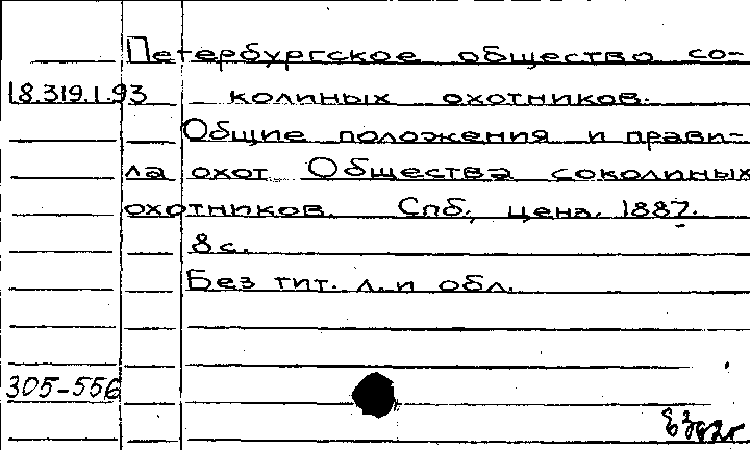 Петербургское общество со-
18.319.1.93 колиных охотников.
Общие положения и прави-
ла охот Общества соколиных
охотников. Спб., ценз. 1887.
8 с.
Без тит. л. и обл.
305-556